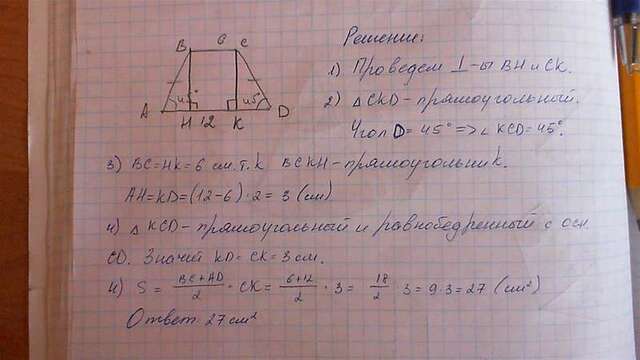 Решение:
B 6 C
1) Проведем ⊥-ы BH и CK.
2) △CKD - прямоугольный.
A 45° 45° D
H 12 K
Угол D = 45° => ∠ KCD = 45°.
3) BC = HK = 6 см. т. к BCKH - прямоугольник.
AH = KD = (12-6) · 2 = 3 (см)
4) △ KCD - прямоугольный и равнобедренный с осн.
CD. Значит KD = CK = 3 см.
4) S = BC+AD/2 · CK = 6+12/2 · 3 = 18/2 · 3 = 9·3 = 27 (см²)
Ответ 27 см²